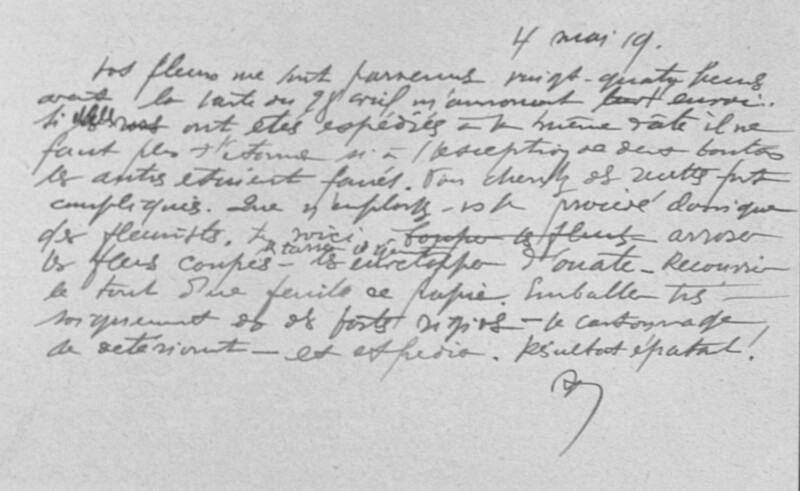 4 mai 19.
Vos fleurs me sont parvenus vingt-quatre heures
avant la carte du 28 avril m'annonçant leur envoi.
Si elles ont étés expédiés à la même date il ne
faut pas s'étonner si à l'exception de deux boutons
les autres étaient fanés. Vous cherchez des recettes fort
compliquées. Que n'employez-vous le procédé classique
des fleuristes. Le voici couper les fleurs arroser
les fleurs coupés - les envelopper d'ouate - Recouvrir
le tout d'une feuille de papier. Emballer très
soigneusement de boîtes rigides - le cartonnage
se détériorent - et expédier. Résultat épatant!